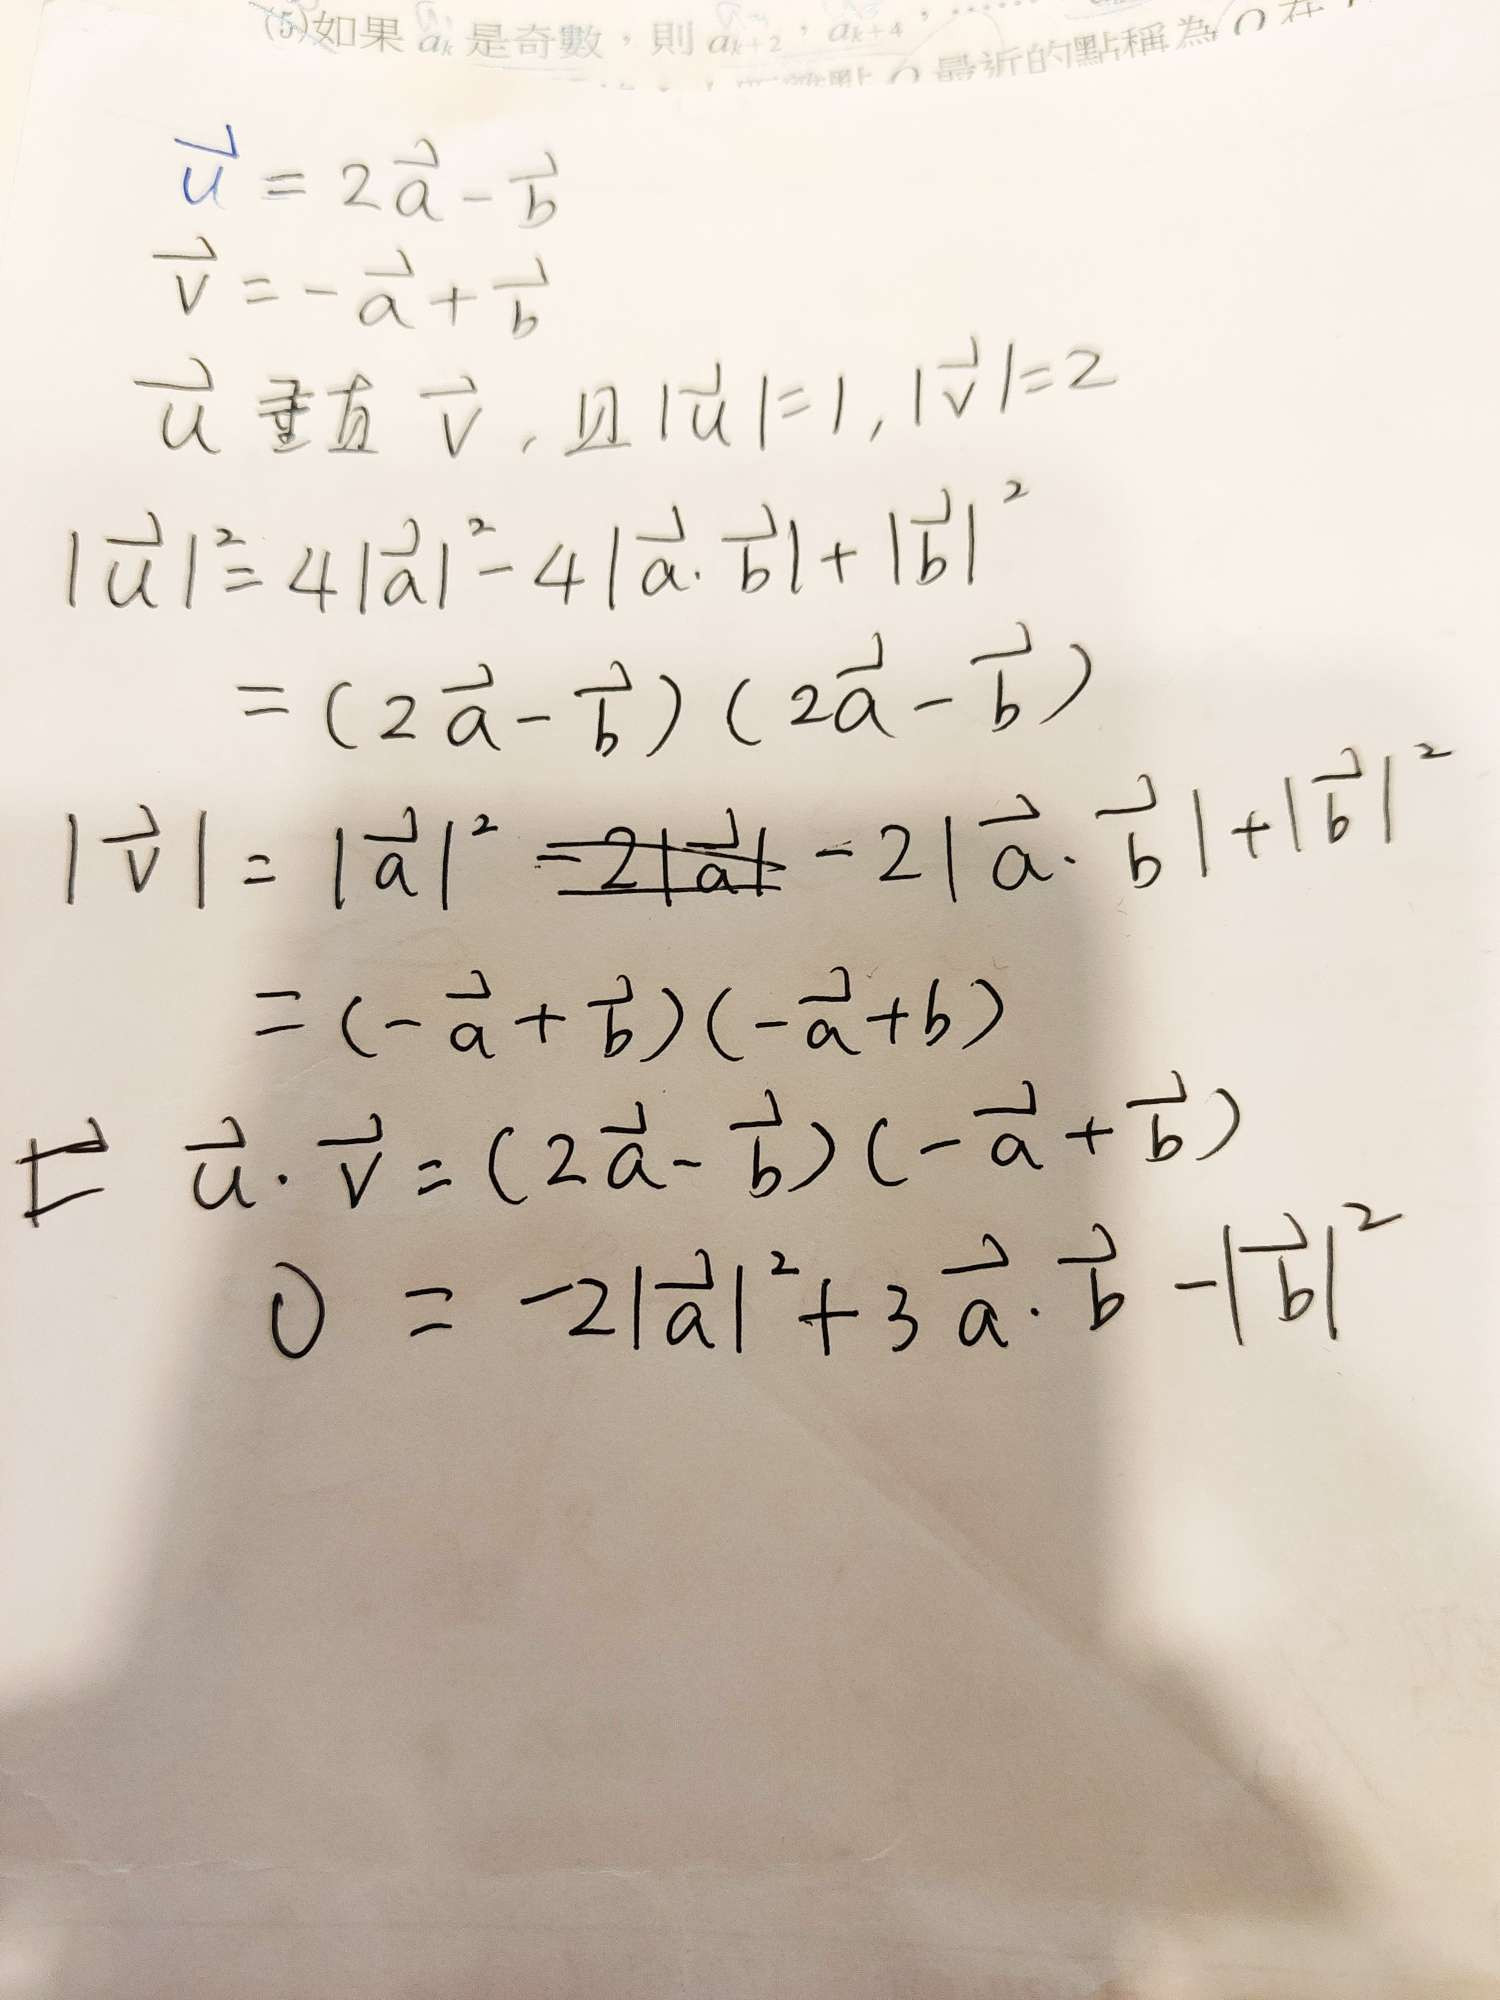 (5)如果 a⃗k 是奇數，則 a⃗k+2，a⃗k+4，……
最近的點稱為 O 在
u⃗ = 2a⃗ - b⃗
v⃗ = -a⃗ + b⃗
u⃗ 垂直 v⃗, 且 |u⃗|=1, |v⃗|=2
|u⃗|² = 4|a⃗|² - 4|a⃗·b⃗| + |b⃗|²
= (2a⃗ - b⃗)(2a⃗ - b⃗)
|v⃗| = |a⃗|² - 2|a⃗·b⃗| + |b⃗|²
= (-a⃗ + b⃗)(-a⃗ + b)
u⃗·v⃗ = (2a⃗ - b⃗)(-a⃗ + b⃗)
0 = -2|a⃗|² + 3a⃗·b⃗ - |b⃗|²